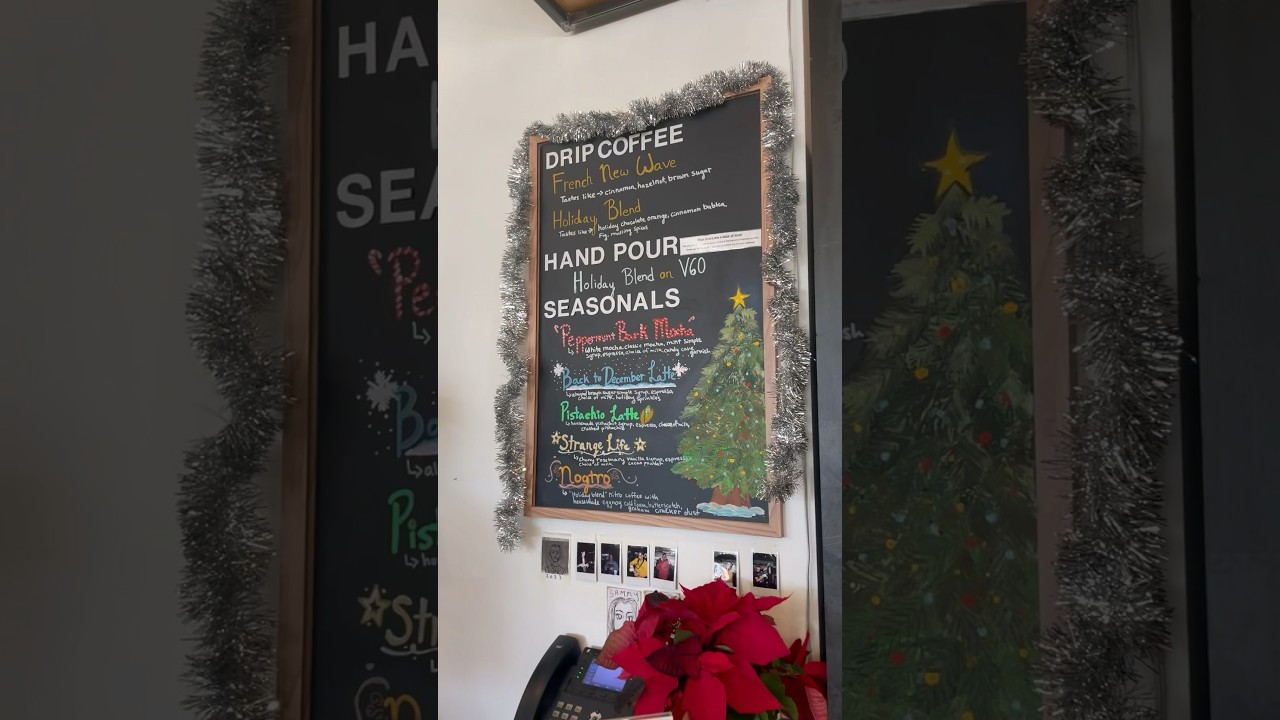 DRIP COFFEE
French New Wave
Tastes like → cinnamon, hazelnut, brown sugar
Holiday Blend
Tastes like → holiday chocolate orange, cinnamon babka,
Fig, mulling spices
HAND POUR
Holiday Blend on V60
SEASONALS
"Peppermint Bark Mocha"
↳ White mocha, classic mocha, mint simple
syrup, espresso, choice of milk, candy cane garnish
Back to December Latte
brown sugar simple syrup, espresso,
choice of milk, holiday sprinkles
Pistachio Latte
↳ homemade pistachio syrup, espresso, choice of milk,
crushed pistachio
Strange Life
↳ cherry rosemary vanilla syrup, espresso,
choice of milk, cocoa powder
Nogtro
↳ "Holiday blend" nitro coffee with
housemade eggnog cold foam, butterscotch,
graham cracker dust
SAMMY
HA
SEA
"Pe
Ba
Pist
ho
Str